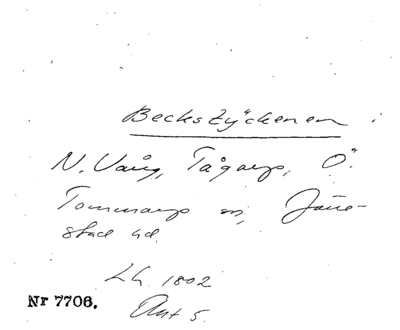 Beckstyckenen
N. Vång, Tågarp, Ö.
Tommarp sn, Järre-
stad hd.
Lh. 1802
Akt 5.
Nr 7706.